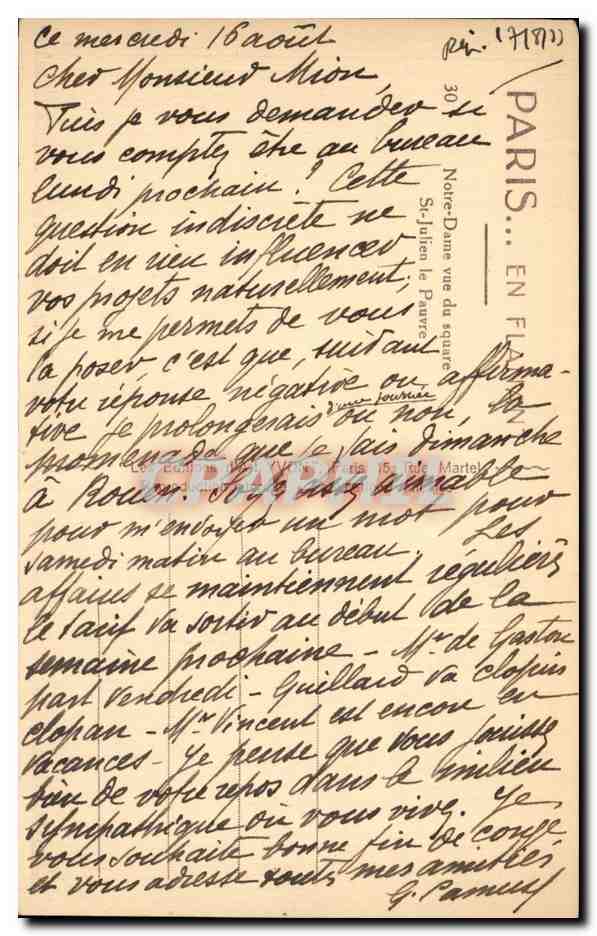 ce mercredi 16 août
Rép. 17/8/33
Cher Monsieur Mion,
Puis je vous demander si
vous comptez être au bureau
lundi prochain? Cette
question indiscrète ne
doit en rien influencer
vos projets naturellement;
si je me permets de vous
la poser, c'est que, suivant
votre réponse négative ou affirma-
tive je prolongerais d'une journée ou non, la
promenade que je fais dimanche
à Rouen. Soyez assez aimable
pour m'envoyer un mot pour
samedi matin au bureau. Les
affaires se maintiennent régulières
le tarif va sortir au début de la
semaine prochaine - Mr. de Gaston
part vendredi - Guillard va clopin
clopan - Mr. Vincent est encore en
vacances - Je pense que vous jouissez
bien de votre repos dans le milieu
sympathique où vous vivez. Je
vous souhaite bonne fin de congé
et vous adresse toutes mes amitiés
G.
PARIS... EN FLA
30
Notre-Dame vue du square
St-Julien le Pauvre
YVON Paris 15, Rue Martel
CPAPHIL